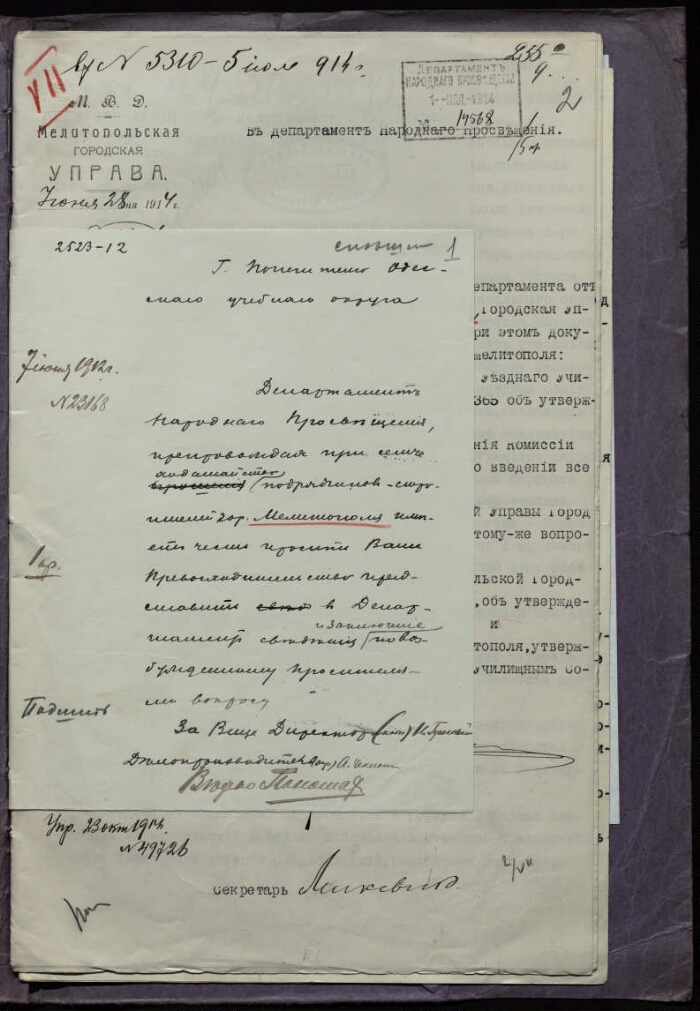 VII
вх N 5310 – 5 июля 914 г.
ДЕПАРТАМЕНТЪ
НАРОДНАГО ПРОСВѢЩЕНІЯ
1914
N 14568
255
9
2
М. В. Д.
МЕЛИТОПОЛЬСКАЯ
ГОРОДСКАЯ
УПРАВА.
Въ департаментъ Народнаго Просвѣщенія.
Июня 28 дня 1914 г.
2523–12
1
Г. Попечителю Одес-
скаго учебнаго округа
7 июня 1912 г.
N 22168
Департаментъ
Народнаго Просвѣщенія,
препровождая при семъ
ходатайство
прошенія подрядчиков-
гор. Мелитополя имѣ-
етъ честь просить Ваше
Превосходительство пред-
ставить в Депар-
и заключение
таментъ по воз-
бужденному просителя-
ми вопросу
1 пр.
Подшить
За Вице Директора
Дѣлопроизводитель
епартамента отъ
городская Уп-
ри этомъ доку-
мелитополя:
уѣзднаго Учи-
365 объ утверж-
нія Комиссіи
о введеніи все
й Управы Город
тому-же вопро-
льской Город-
,объ утвержде-
и
тополя,утверж-
училищнымъ Со-
Упр. 23 окт 1914.
N 49726
Секретарь